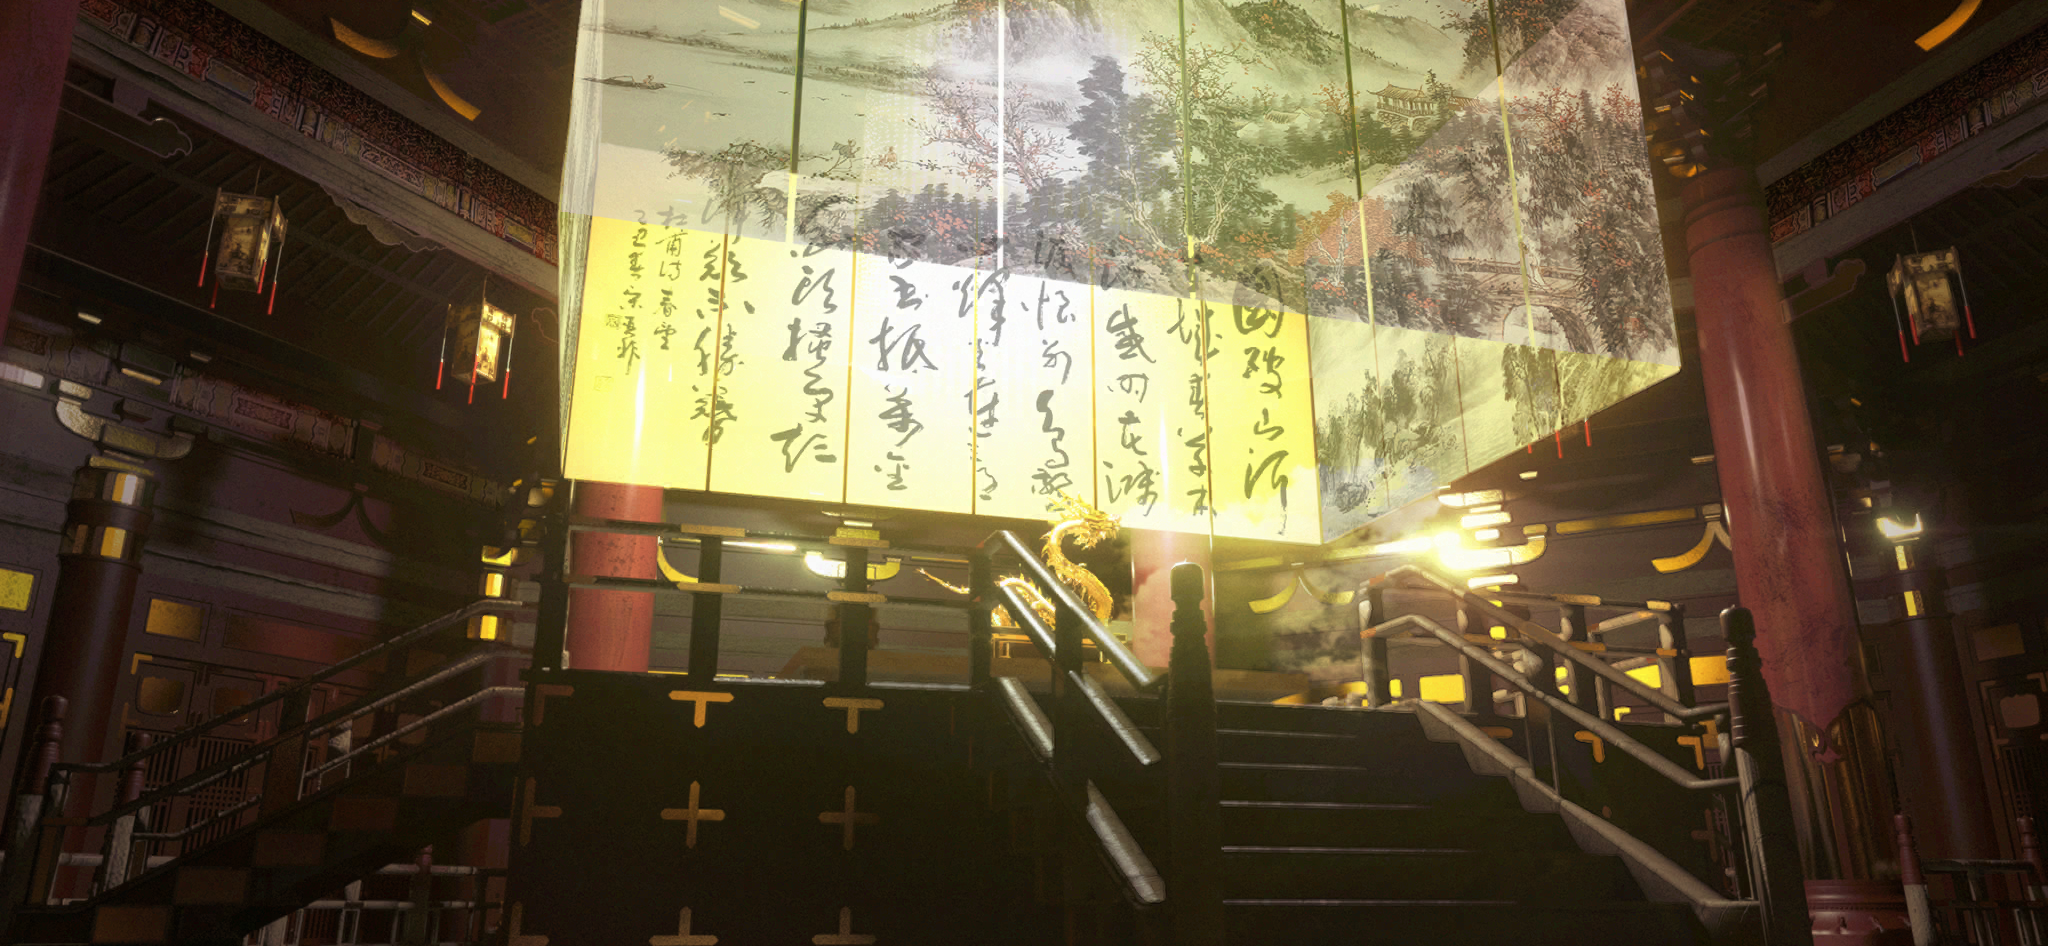 國破山河
城春草木
深感时花溅
泪恨别鸟惊
心烽火连三月
家书抵万金
白头搔更短
浑欲不胜簪
杜甫诗春望